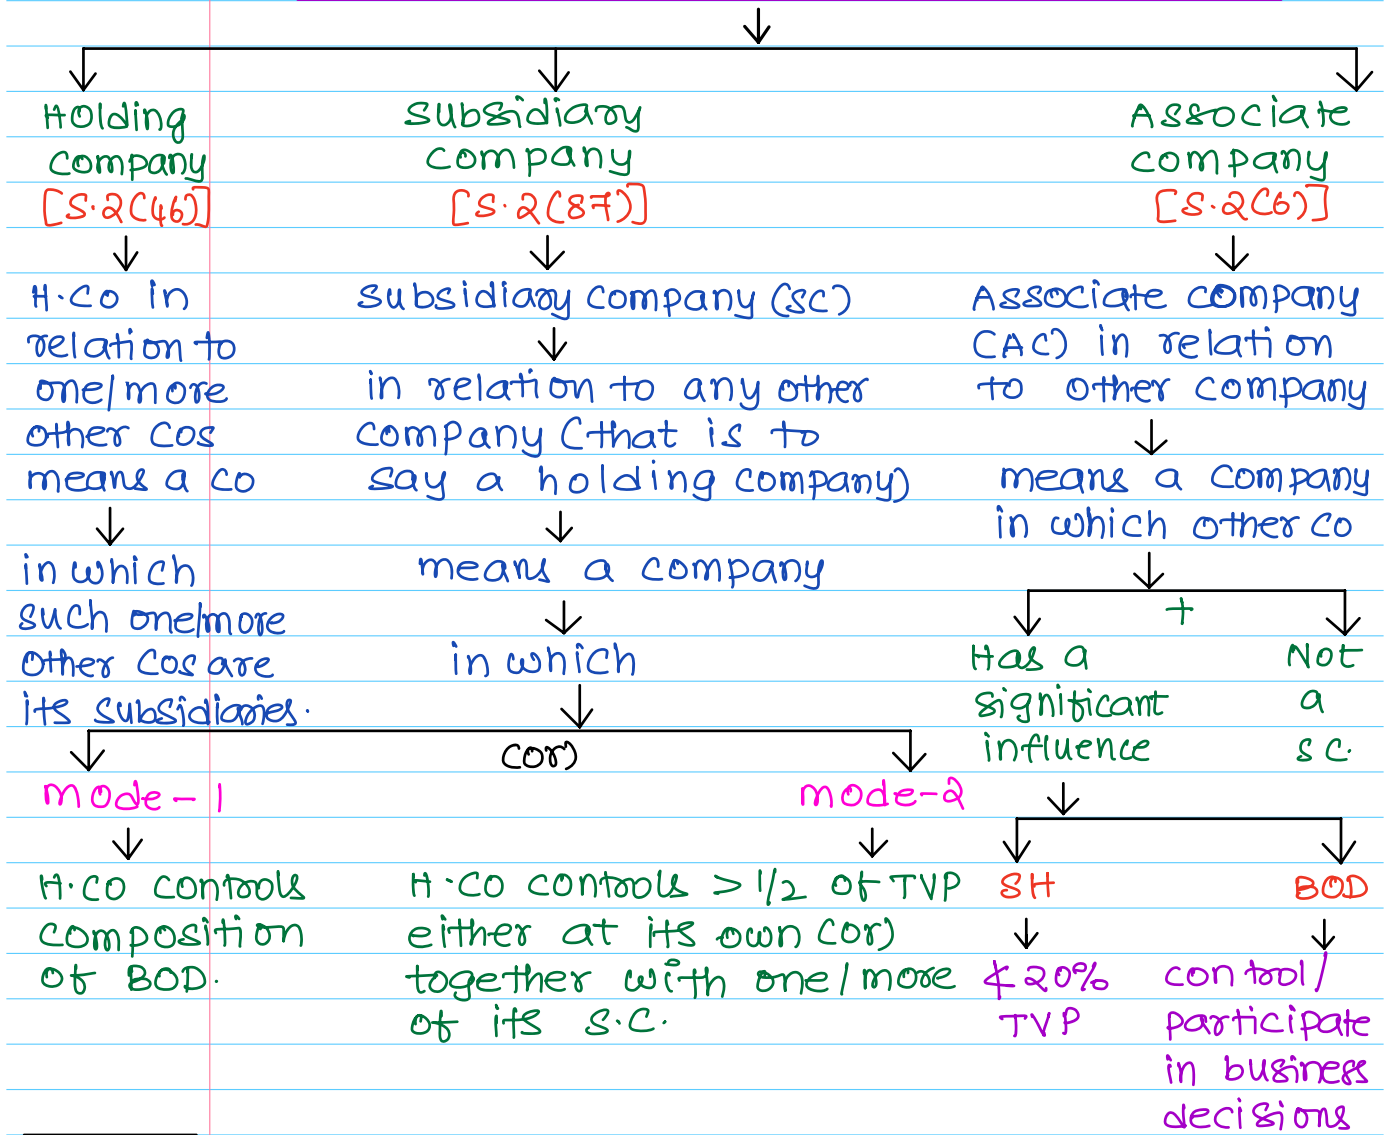 Holding
company
[S.2(46)]
H.CO in
relation to
one/more
other cos
means a co
in which
such one/more
other cos are
its subsidiaries.
Subsidiary
company
[S.2(87)]
Subsidiary company (SC)
in relation to any other
company (that is to
say a holding company)
means a company
in which
(or)
mode-1
H.CO controls
composition
of BOD.
mode-2
H.CO controls > 1/2 of TVP
either at its own (or)
together with one/more
of its S.C.
Associate
company
[S.2(6)]
Associate company
(AC) in relation
to other company
means a company
in which other co
+
Has a
significant
influence
Not
a
SC.
SH
≮20%
TVP
BOD
control/
participate
in business
decisions